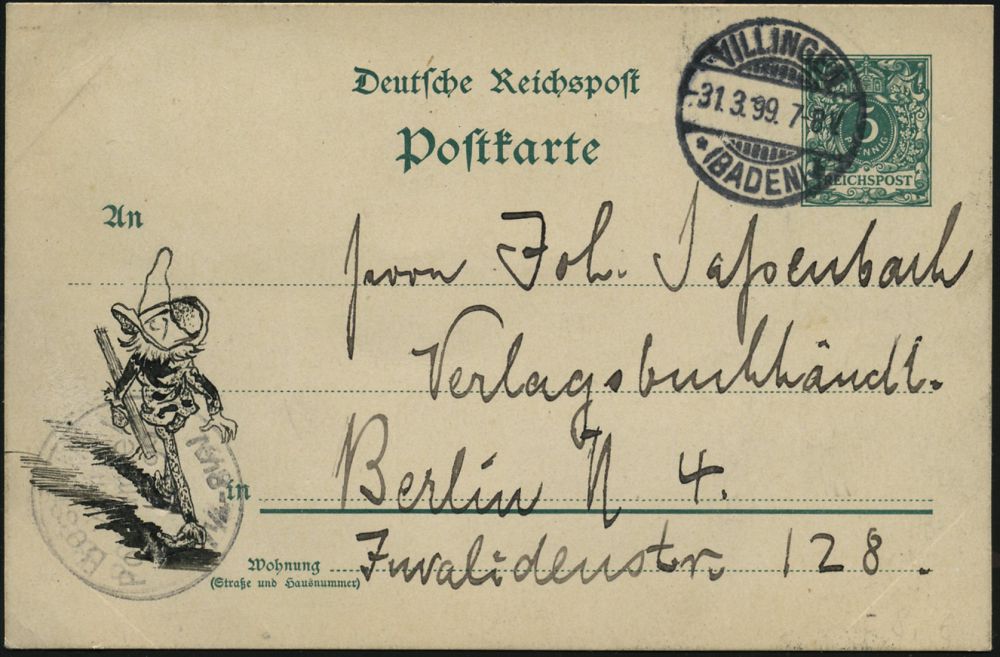 Deutsche Reichspost
Postkarte
VILLINGEN
31.3.99. 7-8V.
* (BADEN) *
5
PFENNIG
REICHSPOST
An
Herrn Joh. Sassenbach
Verlagsbuchhändl.
in Berlin N 4.
Wohnung
(Straße und Hausnummer)
Invalidenstr. 128.